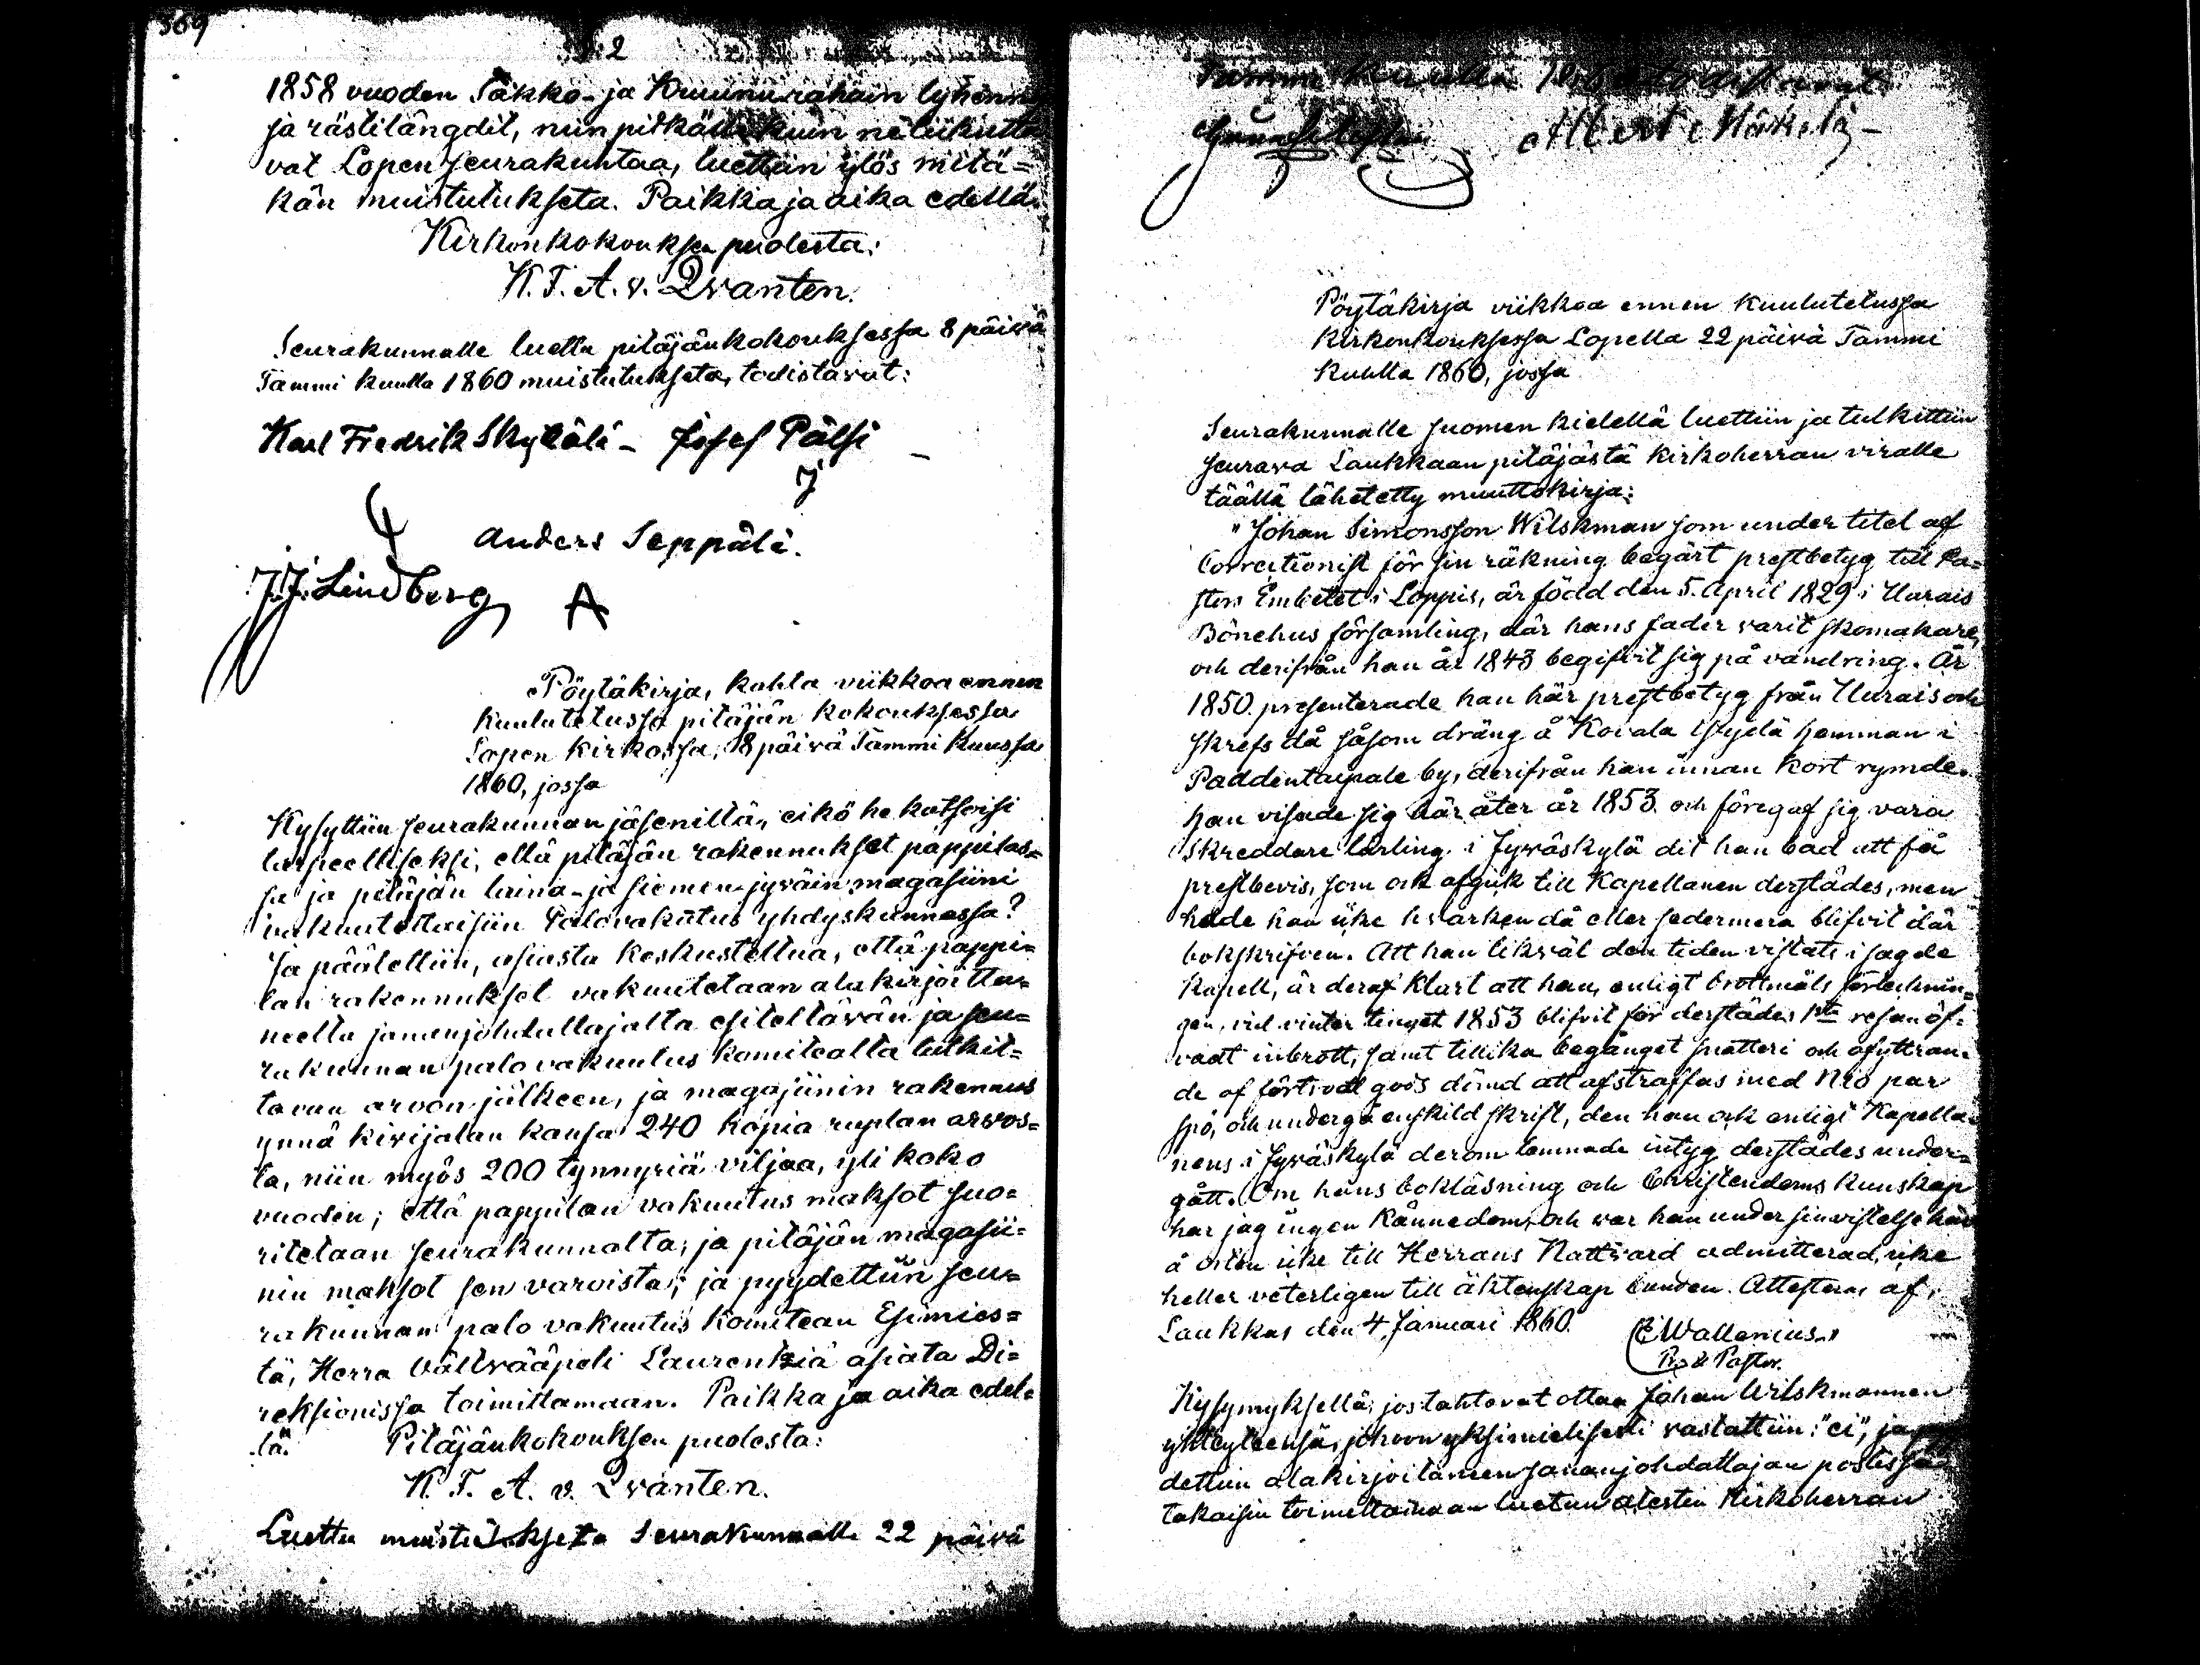 569
§ 2
1858 vuoden Säkkö- ja Kruunu rahain lyhennys
ja rästilängdit, niin pitkältä kuin ne liikutta
vat Lopen seurakuntaa, luettiin ylös mitä=
kän muistutukseta. Paikka ja aika edellä.
Kirkonkokouksen puolesta:
K. F. A. v. Qvanten.
Seurakunnalle luettu pitäjänkokouksessa 8 päivä
Tammi kuulla 1860 muistutukseta, todistavat:
Karl Fredrik Skyttälä - Josef Pälsi
Anders Seppälä.
J.J. Lindberg
Pöytäkirja, kahta viikkoa ennen
kuulutetussa pitäjän kokouksessa
Lopen kirkossa, 8 päivä Tammi kuussa
1860, jossa
Kysyttiin seurakunnan jäseniltä, eikö he katsoisi
tarpeelliseksi, että pitäjän rakennukset pappilas=
sa ja pitäjän laina- ja siemen-jyväin magasiini
vakuutettaisiin Palovakutus yhdyskunnassa?
Ja päätettiin, asiasta keskusteltua, että pappi=
lan rakennukset vakuutetaan alakirjoitta=
neelta sananjohdattajalta esitettävän ja seu=
rakunnan palovakuutus komitealta tutkit=
tavan arvon jälkeen, ja magasiinin rakennus
ynnä kivijalan kansa 240 hopia ruplan arvos=
ta, niin myös 200 tynnyriä viljaa, yli koko
vuoden; että pappilan vakuutus maksot suo=
ritetaan seurakunnalta, ja pitäjän magasii=
nin maksot sen varoista; ja pyydettiin seu=
rakunnan palo vakuutus komitean Esimies=
tä, Herra Vältvääpeli Laurentziä asiata Di=
reksionissa toimittamaan. Paikka ja aika edel=
lä. Pitäjänkokouksen puolesta:
K. F. A. v. Qvanten.
Luettu muistutukseta Seurakunnalle 22 päivä
Tammi kuulla 1860 todistavat
Albert Mäkelä -
Pöytäkirja viikkoa ennen kuulutetussa
kirkonkouksessa Lopella 22 päivä Tammi
kuulla 1860, jossa
Seurakunnalle suomen kielellä luettiin ja tulkittiin
seurava Laukkaan pitäjästä kirkoherran viralle
täällä lähetetty muuttokirja:
"Johan Simonsson Wilskman som under titel af
Correctionist för sin räkning begärt prestbetyg till Pa=
stors Embetet i Loppis, är född den 5. April 1829 i Uurais
Bönehus församling, där hans fader varit skomakare,
och derifrån han år 1843 begifvit sig på vandring. År
1850 presenterade han här prestbetyg från Uurais och
skrefs då såsom dräng å Koivala Hyylä hemman i
Paddentaipale by, derifrån han innan kort rymde.
Han visade sig här åter år 1853 och föregaf sig vara
Skreddare lärling i Jyväskylä dit han bad att få
prestbevis, som ock afgick till Kapellanen derstädes, men
hade han icke hvarken då eller sedermera blifvit där
bokskrifven. Att han likväl den tiden vistats i sagde
Kapell, är deraf klart att han, enligt brottmåls förteckning=
gen, vid vinter tinget 1853 blifvit för derstädes 1sta resan öf=
vadt inbrott, samt tillika begånget snatteri och afyttran=
de af förtrodt gods dömd att afstraffas med Nio par
spö, och undergå enskild skrift, den han ock enligt Kapella=
nens i Jyväskylä derom lemnade intyg derstädes under=
gått. Om hans bokläsning och Christendoms kunskap
har jag ingen kännedom, och var han under sin vistelse här
å orten icke till Herrans Nattvard admitterad, icke
heller veterligen till äktenskap bunden. Attesteras af,
Laukkas den 4. Januari 1860. CE Wallenius
Pro & Pastor.
Kysymyksellä: jos tahtovat ottaa Johan Wilskmannen
yhteyteensä, johoon yksimielisesti vastattiin: "ei", ja
dettiin alakirjoittaneen sananjohdattajan postissa
takaisin toimittamaan luetun atestin Kirkoherran